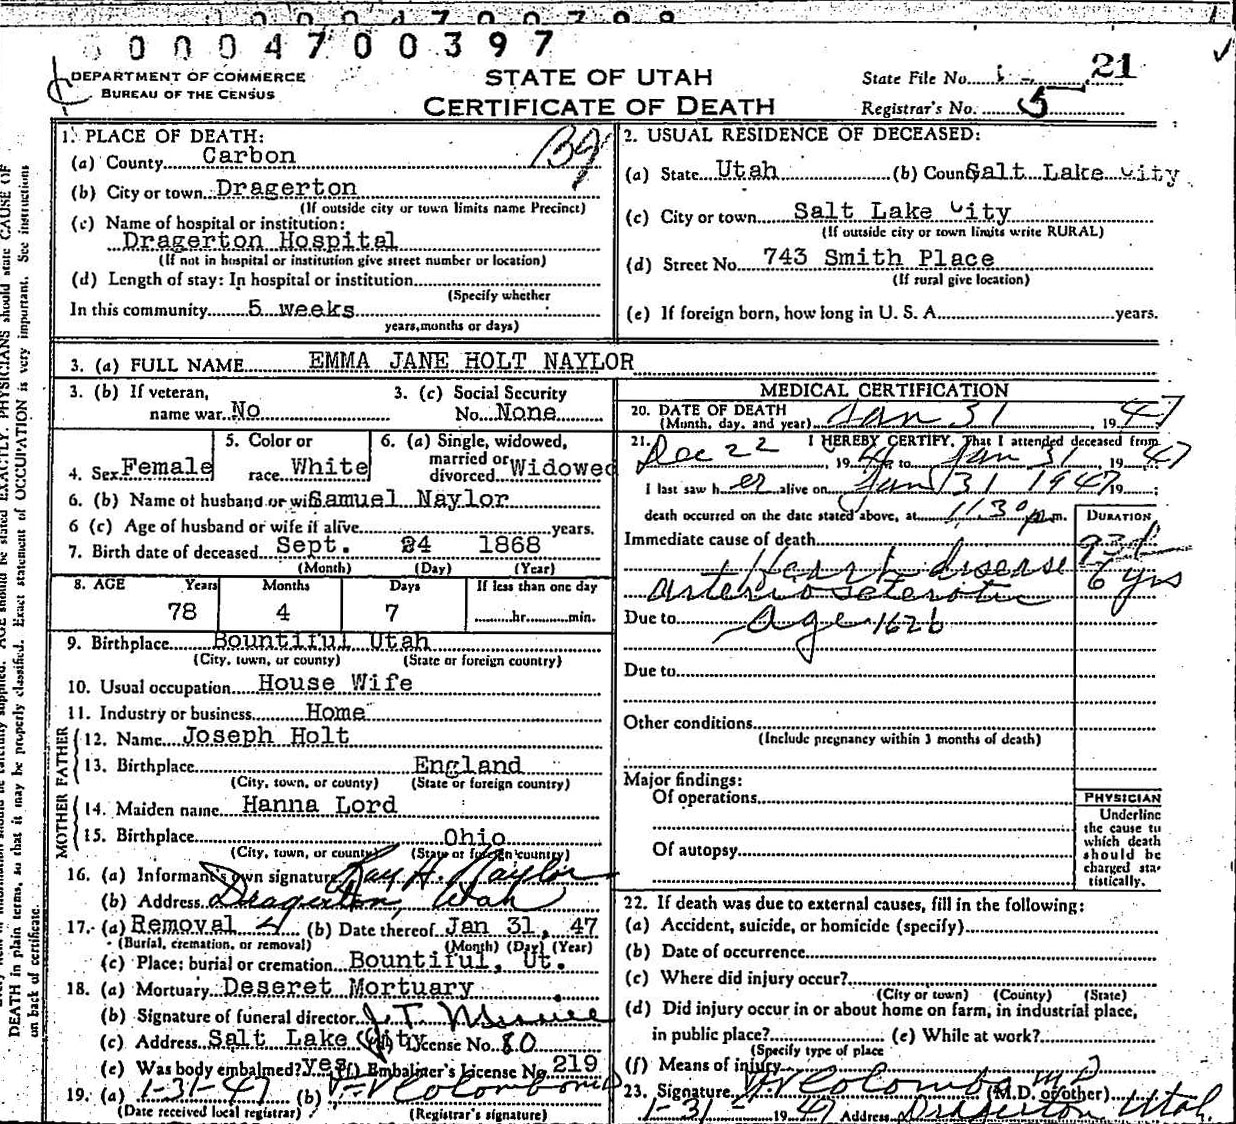 0004700397
DEPARTMENT OF COMMERCE
BUREAU OF THE CENSUS
STATE OF UTAH
CERTIFICATE OF DEATH
State File No. 21
Registrar's No. 5
1. PLACE OF DEATH:
(a) County Carbon
(b) City or town Dragerton
(If outside city or town limits name Precinct)
(c) Name of hospital or institution:
Dragerton Hospital
(If not in hospital or institution give street number or location)
(d) Length of stay: In hospital or institution
(Specify whether
In this community 5 weeks
years, months or days)
2. USUAL RESIDENCE OF DECEASED:
(a) State Utah (b) Coun Salt Lake City
(c) City or town Salt Lake City
(If outside city or town limits write RURAL)
(d) Street No. 743 Smith Place
(If rural give location)
(e) If foreign born, how long in U. S. A. years.
3. (a) FULL NAME EMMA JANE HOLT NAYLOR
3. (b) If veteran, name war No
3. (c) Social Security No. None
4. Sex Female
5. Color or race White
6. (a) Single, widowed, married or divorced Widowed
6. (b) Name of husband or wife Samuel Naylor
6 (c) Age of husband or wife if alive years.
7. Birth date of deceased Sept. 24 1868
(Month) (Day) (Year)
8. AGE Years Months Days If less than one day
78 4 7 hr. min.
9. Birthplace Bountiful Utah
(City, town, or county) (State or foreign country)
10. Usual occupation House Wife
11. Industry or business Home
FATHER
12. Name Joseph Holt
13. Birthplace England
(City, town, or county) (State or foreign country)
MOTHER
14. Maiden name Hanna Lord
15. Birthplace Ohio
(City, town, or county) (State or foreign country)
16. (a) Informant's own signature Ray H. Naylor
(b) Address Dragerton, Utah
17. (a) Removal (b) Date thereof Jan 31, 47
(Burial, cremation, or removal) (Month) (Day) (Year)
(c) Place: burial or cremation Bountiful, Ut.
18. (a) Mortuary Deseret Mortuary
(b) Signature of funeral director J. T.
(c) Address Salt Lake City License No. 80
(e) Was body embalmed? yes (f) Embalmer's License No. 219
19. (a) 1-31-47 (b) Colombo MD
(Date received local registrar) (Registrar's signature)
MEDICAL CERTIFICATION
20. DATE OF DEATH Jan 31, 1947
(Month, day, and year)
21. I HEREBY CERTIFY, That I attended deceased from
Dec 22, 1946 to Jan 31 1947
I last saw her alive on Jan 31 1947 19 ;
death occurred on the date stated above, at 11:30 p.m.
DURATION
Immediate cause of death 93d
Heart disease 6 yrs
arteriosclerotic
Due to age 162b
Due to
Other conditions
(Include pregnancy within 3 months of death)
Major findings:
Of operations
Of autopsy
PHYSICIAN
Underline
the cause to
which death
should be
charged sta-
tistically.
22. If death was due to external causes, fill in the following:
(a) Accident, suicide, or homicide (specify)
(b) Date of occurrence
(c) Where did injury occur?
(City or town) (County) (State)
(d) Did injury occur in or about home on farm, in industrial place,
in public place? (e) While at work?
(Specify type of place
(f) Means of injury
23. Signature Colombo MD (M.D. or other)
1-31- 1947 Address Dragerton Utah.
AGE should be stated EXACTLY. PHYSICIANS should state CAUSE OF
DEATH in plain terms, so that it may be properly classified. Exact statement of OCCUPATION is very important. See instructions
on back of certificate.